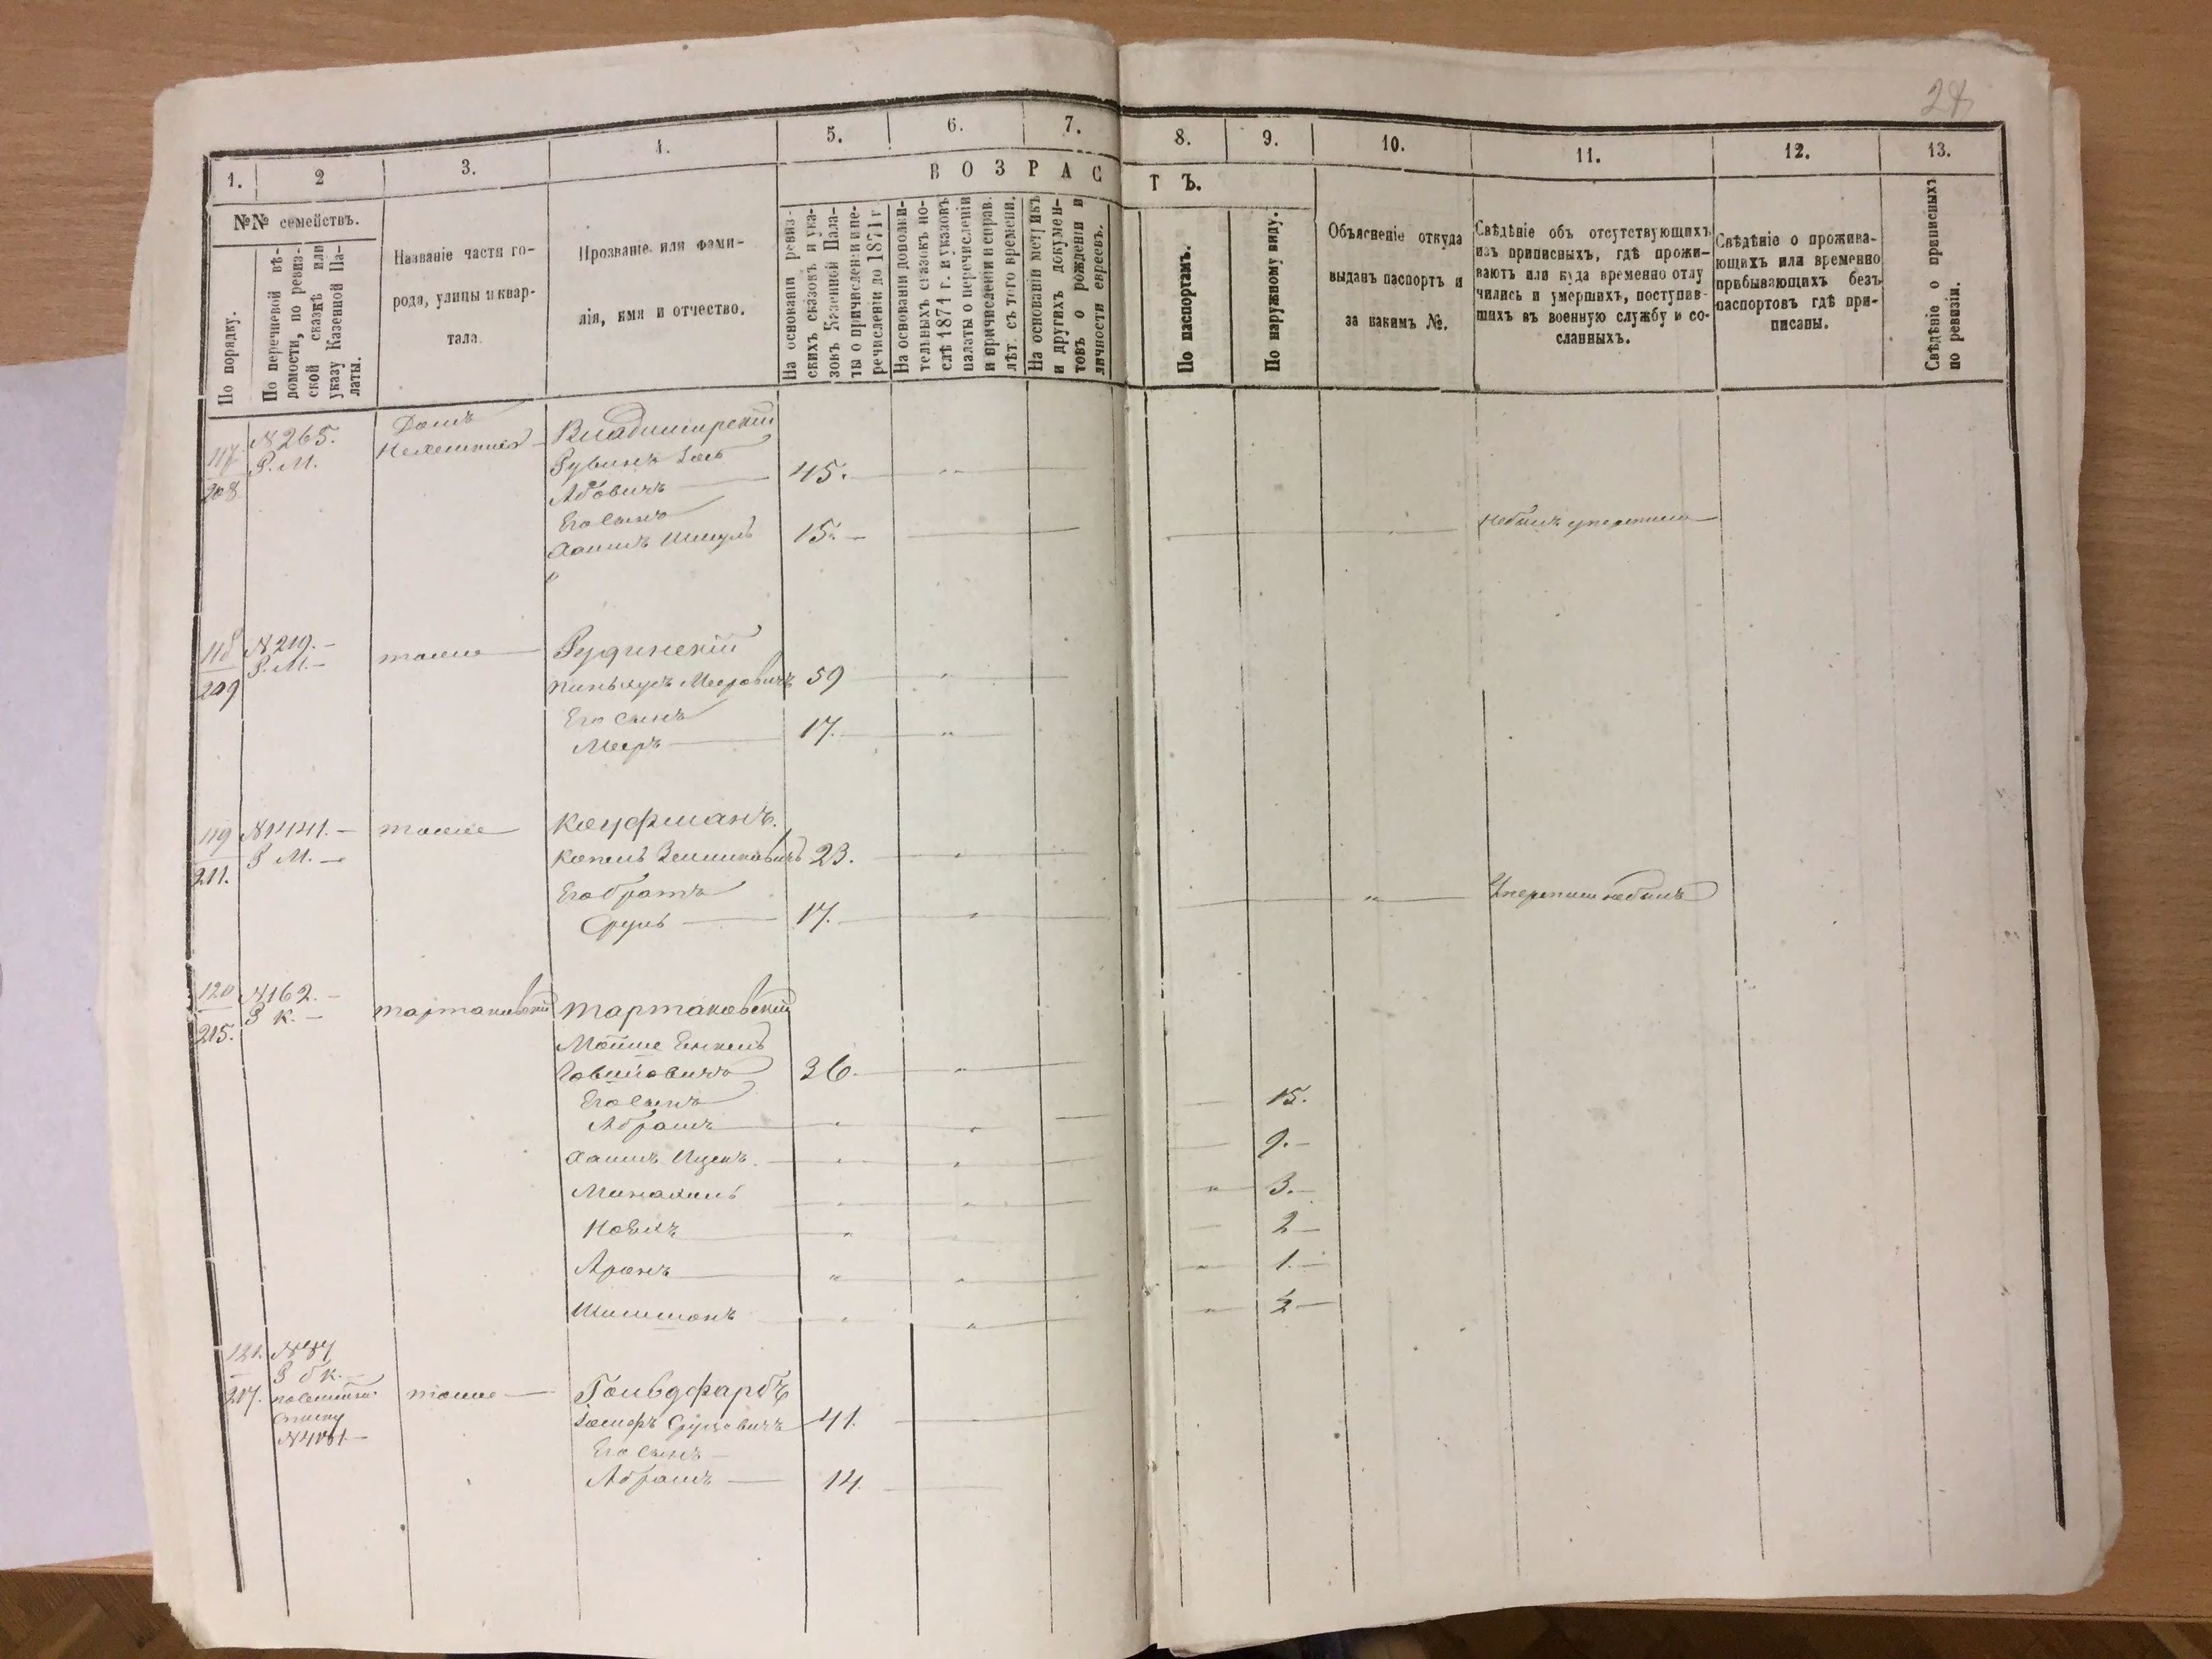 28
1.
2
3.
4.
5.
6.
7.
8.
9.
10.
11.
12.
13.
В О З Р А С Т Ъ.
№№ семействъ.
По порядку.
По перечневой вѣ-
домости, по ревиз-
ской сказкѣ или
указу Казенной Па-
латы.
Названіе части го-
рода, улицы и квар-
тала.
Прозваніе или фами-
лія, имя и отчество.
На основаніи ревиз-
скихъ сказокъ и ука-
зовъ Казенной Пала-
ты о причисленіи и пе-
речисленіи до 1871 г
На основаніи дополни-
тельныхъ сказокъ по-
слѣ 1871 г. и указовъ
палаты о перечисленіи
и причисленіи и справ.
лѣт. съ того времени.
На основаніи метрикъ
и другихъ докумен-
товъ о рожденіи и
личности евреевъ.
По паспортамъ.
По наружному виду.
Объясненіе откуда
выданъ паспортъ и
за какимъ №.
Свѣдѣніе объ отсутствующихъ
изъ приписныхъ, гдѣ прожи-
ваютъ или куда временно отлу
чились и умершихъ, поступив-
шихъ въ военную службу и со-
сланныхъ.
Свѣдѣніе о прожива-
ющихъ или временно
прибывающихъ безъ
паспортовъ гдѣ при-
писаны.
Свѣдѣніе о приписныхъ
по ревизіи.
117
208
N 265.
Р. М.
Домъ
Владимирскій
Рувинъ
Абовичъ 45.
Его сынъ
Хаимъ Шмуль 15.
небылъ упереписи
118
209
N 219.
Р. М.
тоже
Рудинскій
Пинькусъ Мееровичъ 59
Его сынъ
Мееръ 17.
119
211.
Р М.
тоже
Кауфманъ.
Копель 23.
Его братъ
Сруль 17.
Упереписи небылъ
120
215.
N 162.
Р К.
Тартаковскій
Тартаковскій
Мошше Енкель
36.
Его сынъ
Абрамъ 15.
Хаимъ Ицекъ. 9.
Минахимъ 3.
2
Аронъ 1.
Шлиомонъ ½
121.
217.
Р б к.
списку
тоже
Гольдфарбъ
41.
Его сынъ
Абрамъ 14.